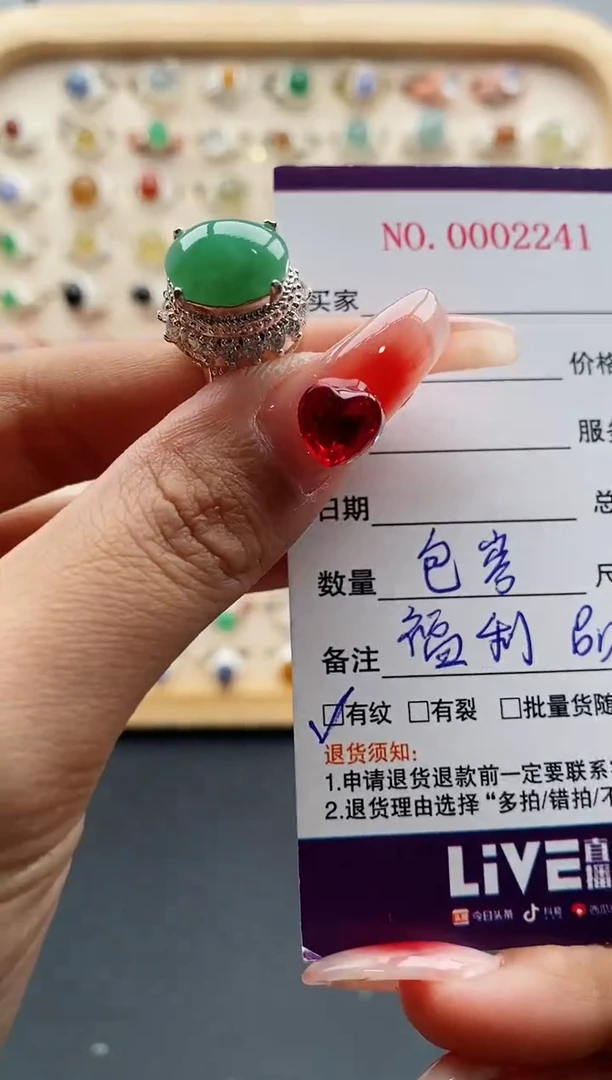 NO.0002241
买家
价格
服务
日期
总
数量 包
尺
备注 福利
☑有纹 □有裂 □批量货随
退货须知:
1.申请退货退款前一定要联系
2.退货理由选择“多拍/错拍/不
LiVE直播
今日头条 抖音 西瓜